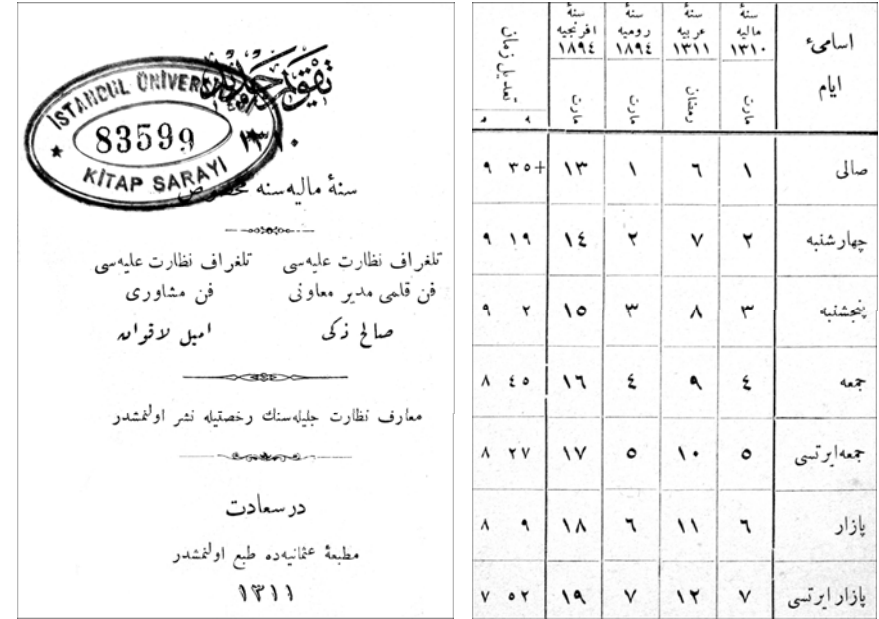 تقويم
١٣١٠
ISTANBUL ÜNİVERSİTESİ
83599
KİTAP SARAYI
سنۀ ماليه‌سنه مخصوص
تلغراف نظارت عليه‌سی تلغراف نظارت عليه‌سی
فن قلمی مدير معاونی فن مشاوری
صالح ذکی اميل لاقوان
معارف نظارت جليله‌سنك رخصتيله نشر اولنمشدر
درسعادت
مطبعۀ عثمانيه‌ده طبع اولنمشدر
١٣١١
اسامیء ايام
سنۀ ماليه ١٣١٠ مارت
سنۀ عربيه ١٣١١ رمضان
سنۀ روميه ١٨٩٤ مارت
سنۀ افرنجيه ١٨٩٤ مارت
تعديل زمان
صالی ١ ٦ ١ ١٣ +٣٥ ٩
چهارشنبه ٢ ٧ ٢ ١٤ ١٩ ٩
پنجشنبه ٣ ٨ ٣ ١٥ ٢ ٩
جمعه ٤ ٩ ٤ ١٦ ٤٥ ٨
جمعه‌ايرتسی ٥ ١٠ ٥ ١٧ ٢٧ ٨
پازار ٦ ١١ ٦ ١٨ ٩ ٨
پازار ايرتسی ٧ ١٢ ٧ ١٩ ٥٢ ٧